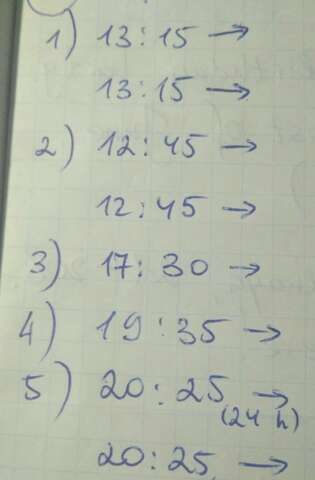 1) 13:15 →
13:15 →
2) 12:45 →
12:45 →
3) 17:30 →
4) 19:35 →
5) 20:25 →
(24 h)
20:25 →